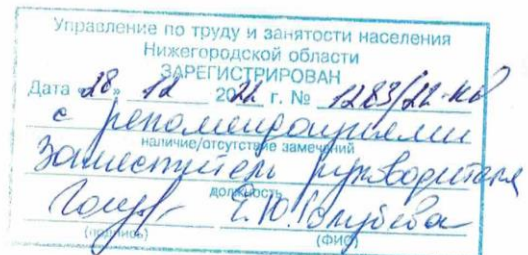 Управление по труду и занятости населения
Нижегородской области
ЗАРЕГИСТРИРОВАН
Дата «28» 12 2022 г. № 1283/22-КД
с рекомендациями
наличие/отсутствие замечаний
Заместитель руководителя
должность
Голуб Е.Ю. Голубева
(подпись) (ФИО)